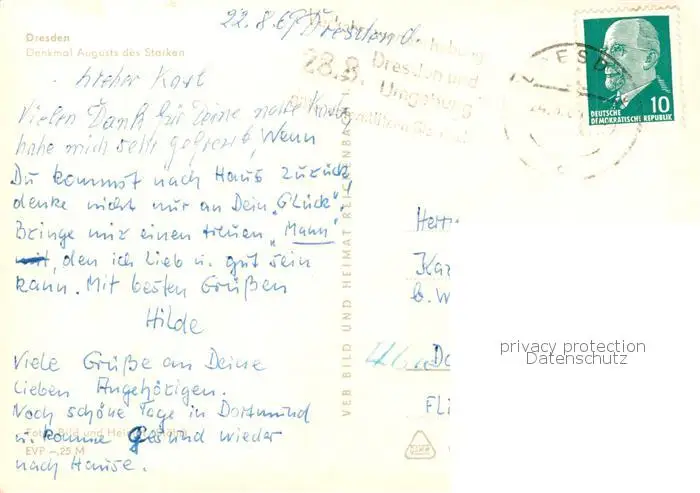 22.8.69 Dresden d.
Dresden
Denkmal Augusts des Starken
28.8. Dresden und
Umgebung
10
DEUTSCHE
DEMOKRATISCHE REPUBLIK
Lieber Karl
Vielen Dank für Deine nette Karte
habe mich sehr gefreut, Wenn
Du kommst nach Haus zurück,
denke nicht nur an Dein „Glück“,
Bringe mir einen treuen „Mann“
mit, den ich lieb u. gut sein
kann. Mit besten Grüßen
Hilde
Viele Grüße an Deine
lieben Angehörigen.
Noch schöne Tage in Dortmund
u. komme gesund wieder
nach Hause.
Foto: Bild und Heimat
EVP –,25 M
VEB BILD UND HEIMAT REICHENBACH
Herrn
Kar
b. W
46
Do
privacy protection
Datenschutz